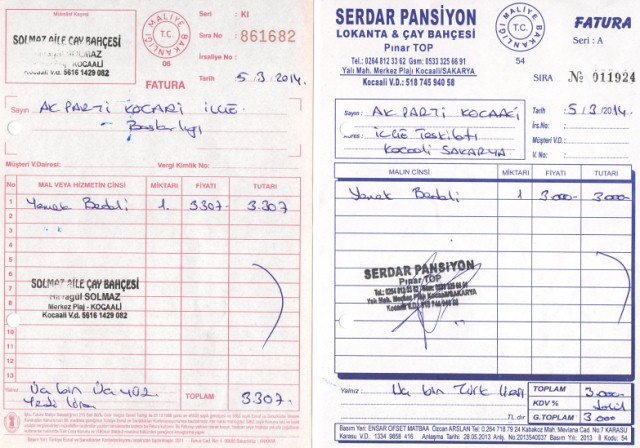 Mükellef Kaşesi
SOLMAZ AİLE ÇAY BAHÇESİ
SOLMAZ
KOCAALİ
Kocaali V.D. 5616 1429 082
MALİYE BAKANLIĞI
T.C.
06
FATURA
Seri : KI
Sıra No : 861682
İrsaliye No :
Tarih : 5.3.2014.
Sayın AK PARTİ KOCAALİ İLÇE
Başkanlığı
Müşteri V.Dairesi: Vergi Kimlik No:
No MAL VEYA HİZMETİN CİNSİ MİKTARI FİYATI TUTARI
1 Yemek Bedeli 1. 3.307 3.307
2
3
4
5
6
SOLMAZ AİLE ÇAY BAHÇESİ
SOLMAZ
Merkez Plajı - KOCAALİ
Kocaali V.D. 5616 1429 082
10
11
12
13
Yalnız Üç bin Üç yüz
Yedi lira
TOPLAM 3.307
SERDAR PANSİYON
LOKANTA & ÇAY BAHÇESİ
Pınar TOP
Tel: 0264 812 33 62 Gsm: 0533 325 66 91
Yalı Mah. Merkez Plajı Kocaali/SAKARYA
Kocaali V.D.: 518 745 940 58
MALİYE BAKANLIĞI
T.C.
54
FATURA
Seri : A
SIRA № 011924
Sayın AK PARTİ KOCAALİ
Adres: İLÇE Teşkilatı
Kocaali SAKARYA
Tarih :5/3/2014
İrs.No:
Müşteri V.D. :
V. No:
MALIN CİNSİ MİKTARI FİYATI TUTARI
Yemek Bedeli 1 3.000- 3.000-
SERDAR PANSİYON
Pınar TOP
Tel.: 0264 812 33 62 Gsm: 0533 325 66 91
Yalı Mah. Merkez Plajı Kocaali/SAKARYA
Kocaali V.D.: 518 745 940 58
Yalnız : Üç bin Türk Lirası
TL.dir
TOPLAM 3.000-
KDV % Dahil
G.TOPLAM 3.000
Basım Yeri: ENSAR OFSET MATBAA Özcan ARSLAN Tel: 0 264 718 79 24 Kabakoz Mah. Mevlana Cad. No:7 KARASU
Karasu V.D.: 1334 9858 416 Anlaşma Tarihi: 28.05.2013